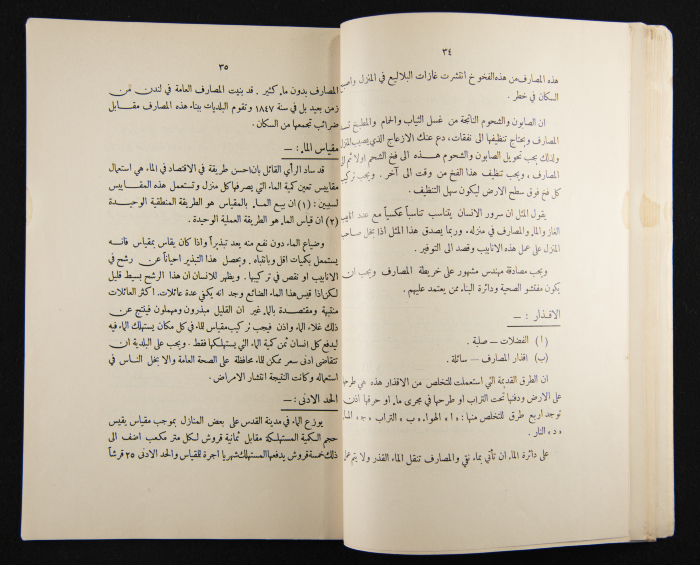 ٣٤
هذه المصارف من هذه الفخوخ انتشرت غازات البلاليع في المنزل واصبح
السكان في خطر .
ان الصابون والشحوم الناتجة من غسل الثياب والحمام والمطبخ تسد
المصارف ويحتاج تنظيفها الى نفقات، دع عنك الازعاج الذي يصيب المنزل
ولذلك يجب تحويل الصابون والشحوم هذه الى فخ الشحم اولا ثم الى
المصارف ، ويجب تنظيف هذا الفخ من وقت الى آخر . ويجب تركيب
كل فخ فوق سطح الارض ليكون سهل التنظيف .
يقول المثل ان سرور الانسان يتناسب تناسباً عكسياً مع عدد انابيب
الغاز والماء والمصارف في منزله. وربما يصدق هذا المثل اذا بخل صاحب
المنزل على عمل هذه الانابيب وقصد الى التوفير .
ويجب مصادقة مهندس مشهور على خريطة المصارف ويجب ان
يكون مفتشو الصحية ودائرة البناء ممن يعتمد عليهم .
الاقذار : —
(أ) الفضلات — صلبة .
(ب) اقذار المصارف — سائلة .
ان الطرق القديمة التي استعملت للتخلص من الاقذار هذه هي طرحها
على الارض ودفنها تحت التراب او طرحها في مجرى ماء او حرقها اذن
توجد اربع طرق للتخلص منها : « ا » الهواء. « ب » التراب « ج » الماء
« د » النار .
على دائرة الماء ان تأتي بماء نقي والمصارف تنقل الماء القذر ولا يتم عمل
٣٥
المصارف بدون ماء كثير . قد بنيت المصارف العامة في لندن من
زمن بعيد بل في سنة ١٨٤٧ وتقوم البلديات ببناء هذه المصارف مقابل
ضرائب تجمعها من السكان .
مقياس الماء : —
قد ساد الرأي القائل بان احسن طريقة في الاقتصاد في الماء هي استعمال
مقاييس تعين كمية الماء التي يصرفها كل منزل وتستعمل هذه المقاييس
لسببين : (١) ان بيع الماء بالمقياس هو الطريقة المنطقية الوحيدة
(٢) ان قياس الماء هو الطريقة العملية الوحيدة .
وضياع الماء دون نفع منه يعد تبذيراً واذا كان يقاس بمقياس فانه
يستعمل بكميات اقل وبانتباه . ويحصل هذا التبذير احياناً عن رشح في
الانابيب او نقص في تركيبها . ويظهر للانسان ان هذا الرشح بسيط قليل
لكن اذا قيس هذا الماء الضائع وجد انه يكفي عدة عائلات. اكثر العائلات
منتبهة ومقتصدة بالماء غير ان القليل مبذرون ومهملون فينتج عن
ذلك غلاء الماء واذن فيجب تركيب مقياس للماء في كل مكان يستهلك الماء فيه
ليدفع كل انسان ثمن كمية الماء التي يستهلكها فقط . ويجب على البلدية ان
تتقاضى ادنى سعر ممكن للماء محافظة على الصحة العامة والا بخل الناس في
استعماله وكانت النتيجة انتشار الامراض .
الحد الادنى : —
يوزع الماء في مدينة القدس على بعض المنازل بموجب مقياس يقيس
حجم الكمية المستهلكة مقابل ثمانية قروش لكل متر مكعب اضف الى
ذلك خمسة قروش يدفعها المستهلك شهريا اجرة للقياس والحد الادنى ٢٥ قرشاً